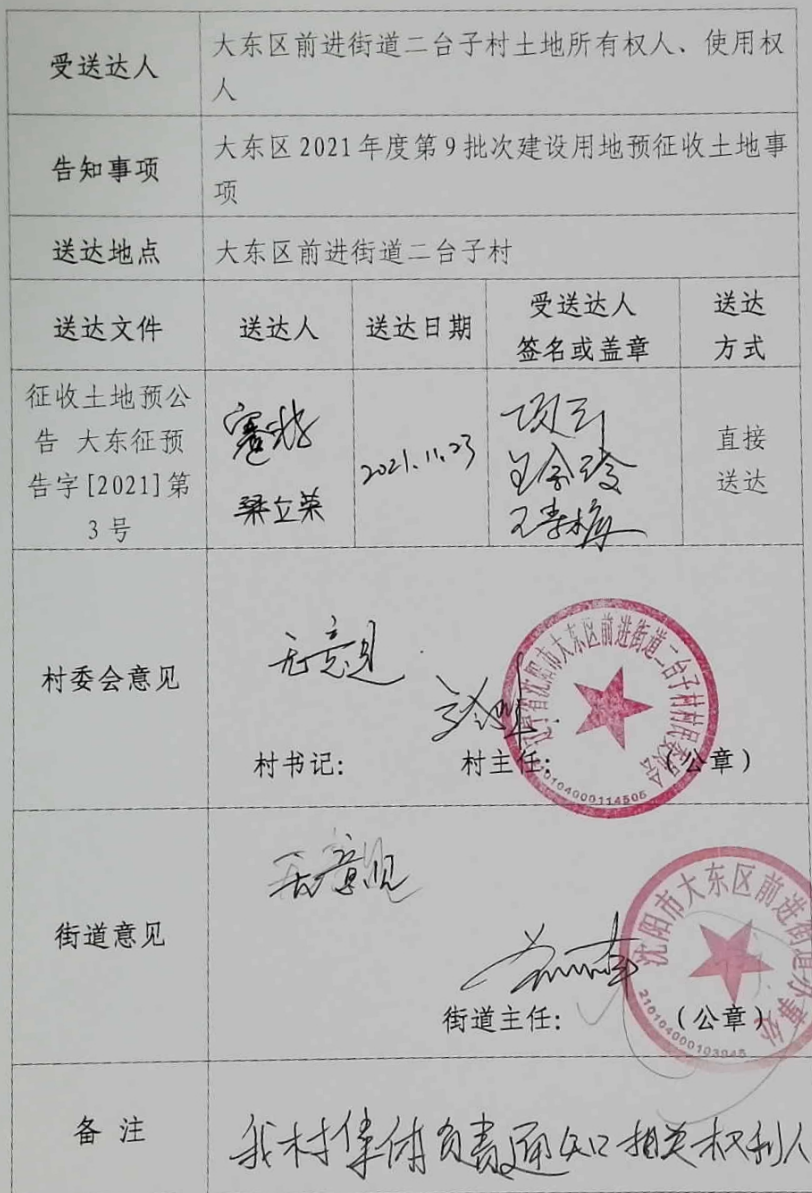 受送达人
大东区前进街道二台子村土地所有权人、使用权
人
告知事项
大东区2021年度第9批次建设用地预征收土地事
项
送达地点
大东区前进街道二台子村
送达文件
送达人
送达日期
受送达人
签名或盖章
送达
方式
征收土地预公
告 大东征预
告字[2021]第
3号
梁立英
2021.11.23
直接
送达
村委会意见
无意见
村书记:
村主任:
(公章)
辽宁省沈阳市大东区前进街道二台子村村民委员会
210104000114505
街道意见
无意见
街道主任:
(公章)
沈阳市大东区前进街道办事处
210104000103045
备 注
我村集体负责通知相关权利人